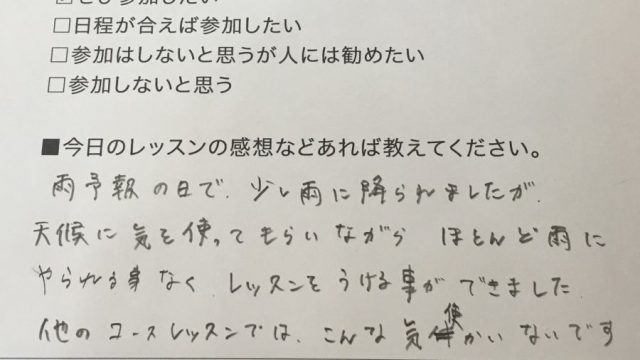 ぜひ参加したい
□日程が合えば参加したい
□参加はしないと思うが人には勧めたい
□参加しないと思う
■今日のレッスンの感想などあれば教えてください。
雨予報の日で、少し雨に降られましたが、
天候に気を使ってもらいながら ほとんど雨に
やられる事なく、レッスンをうける事ができました
他のコースレッスンでは、こんな気使かいないです